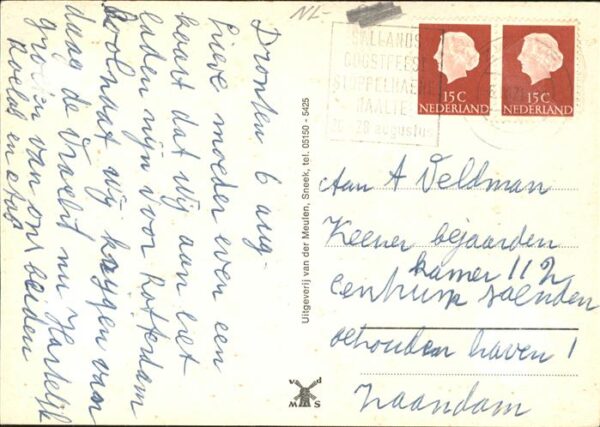 Dronten 6 aug-
Lieve moeder even een
kaart dat wij aan het
laden zijn voor Rotterdam
Loolndat wij krijgen van
daag de vracht nu Hartelijk
groeten van ons beiden
Roelof en
NL-
SALLANDS
OOGSTFEEST
STOPPELHAENE
RAALTE
26-28 augustus
15 C
NEDERLAND
15 C
NEDERLAND
Uitgeverij van der Meulen, Sneek, tel. 05150 - 5425
v d
M S
Aan A Veldman
Keener bejaarden
kamer 112
centrum Zaenden
gehouden haven 1
Zaandam